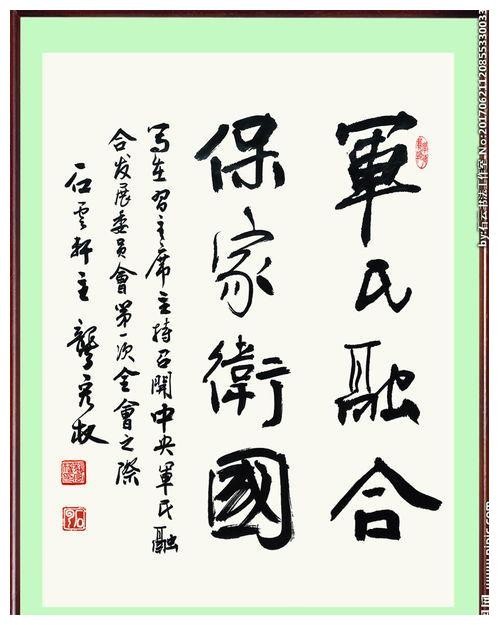 軍民融合
保家衛國
写在習主席主持召開中央軍民融
合发展委员會第一次全會之際
石雲軒主龔
by:石云书法工作室 No:20170621120855330033
www.nipic.com